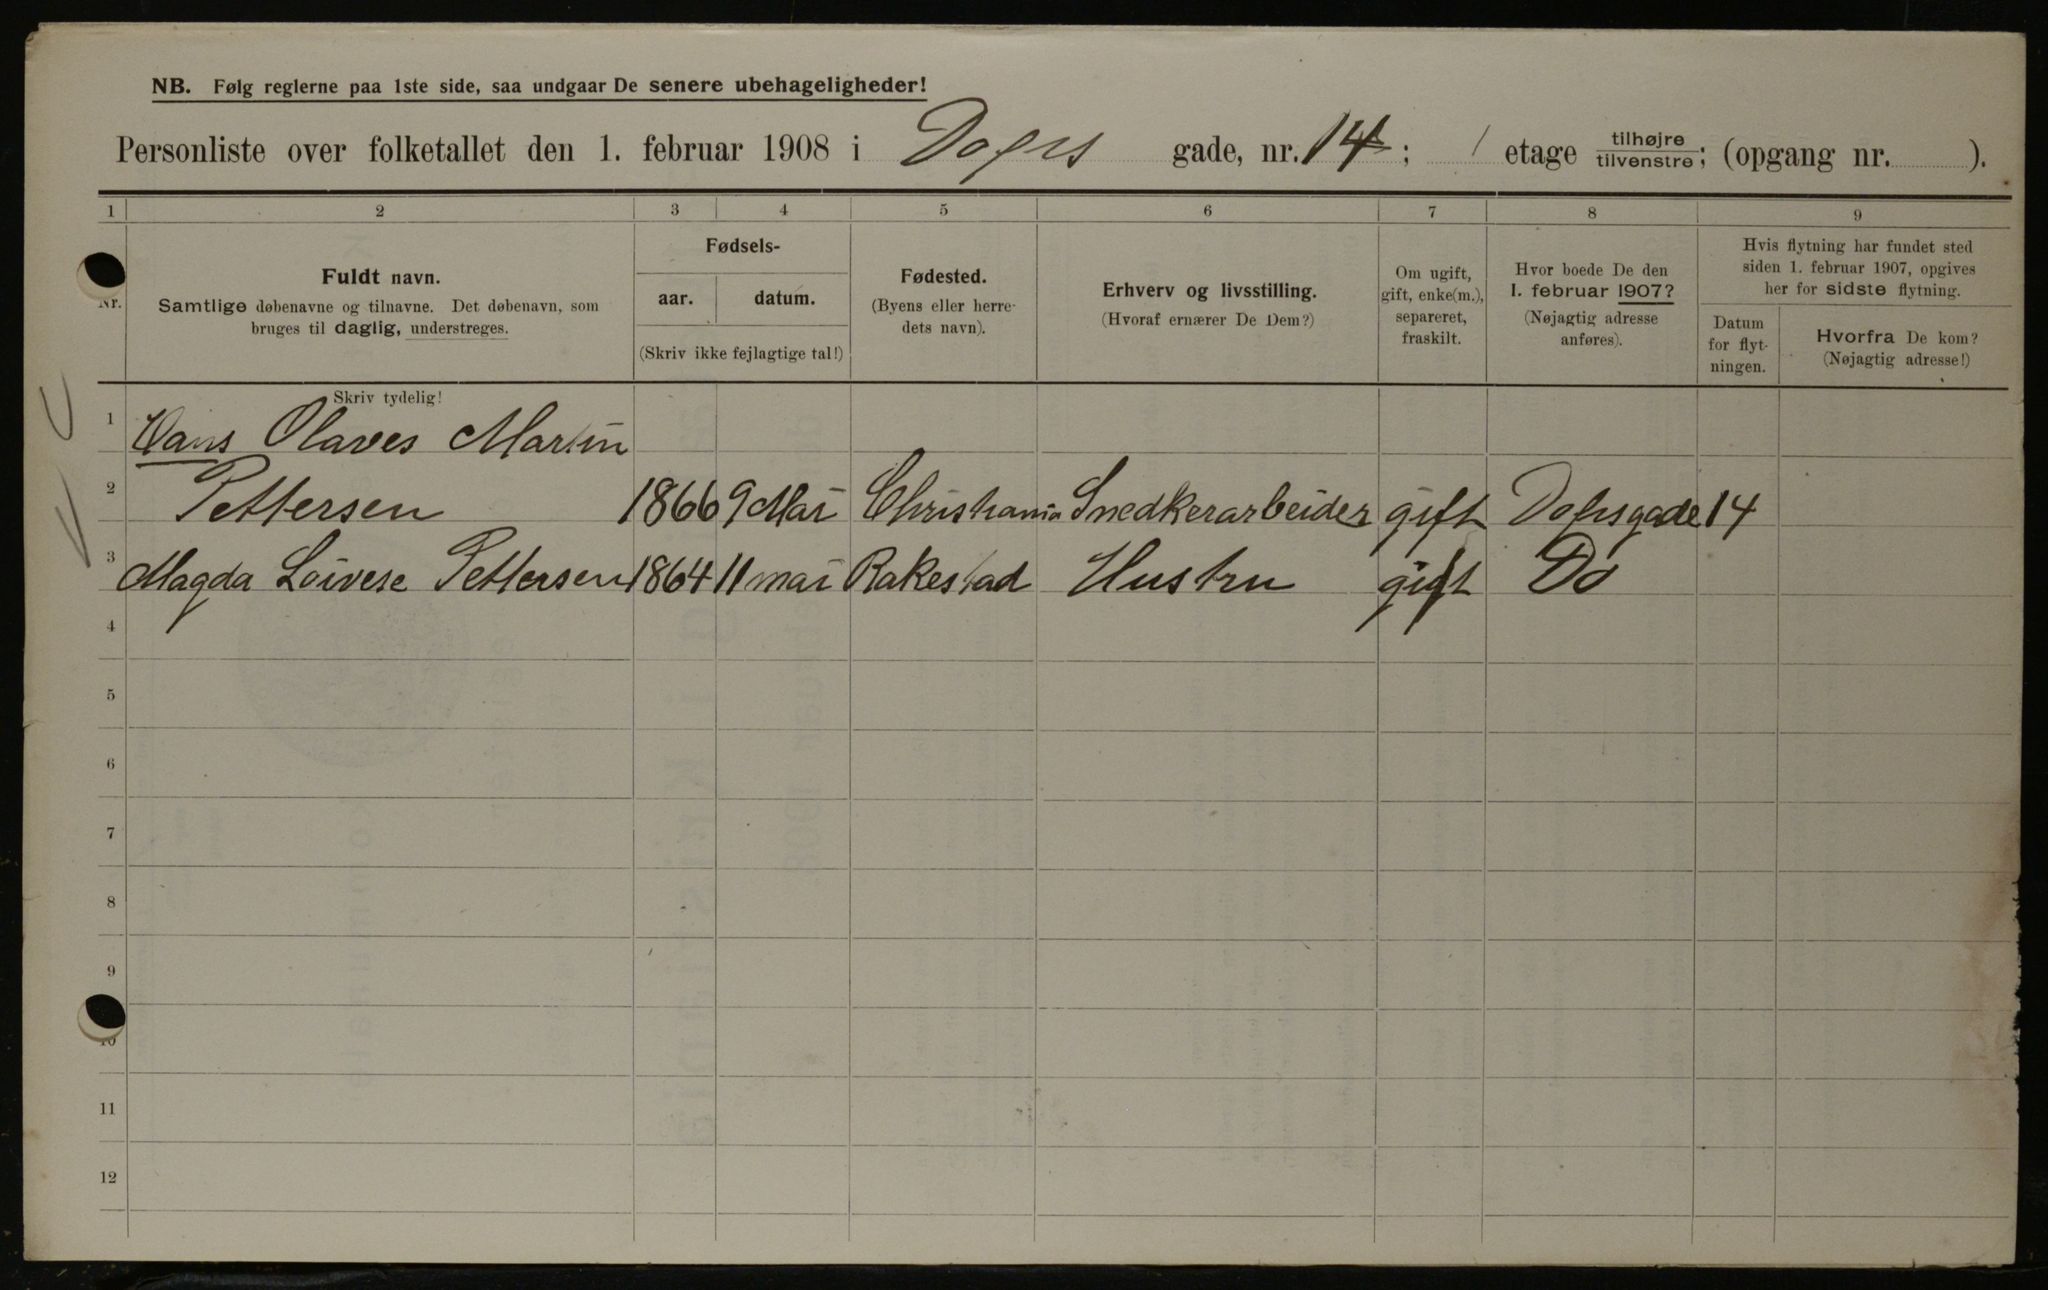 NB. Følg reglerne paa 1ste side, saa undgaar De senere ubehageligheder!
Personliste over folketallet den 1. februar 1908 i Dops gade, nr. 14; 1 etage tilhøjre tilvenstre; (opgang nr. ).
1 2 3 4 5 6 7 8 9
Nr.
Fuldt navn.
Samtlige døbenavne og tilnavne. Det døbenavn, som
bruges til daglig, understreges.
Fødsels-
aar. datum.
(Skriv ikke fejlagtige tal!)
Fødested.
(Byens eller herre-
dets navn).
Erhverv og livsstilling.
(Hvoraf ernærer De Dem?)
Om ugift,
gift, enke(m.),
separeret,
fraskilt.
Hvor boede De den
1. februar 1907?
(Nøjagtig adresse
anføres).
Hvis flytning har fundet sted
siden 1. februar 1907, opgives
her for sidste flytning.
Datum
for flyt-
ningen.
Hvorfra De kom?
(Nøjagtig adresse!)
Skriv tydelig!
1 Hans Olaves Martin
2 Pettersen 1866 9 Mai Christiania Snedkerarbeider gift Dopsgade 14
3 Magda Loivese Pettersen 1864 11 mai Rakestad Hustru gift Do
4
5
6
7
8
9
10
11
12